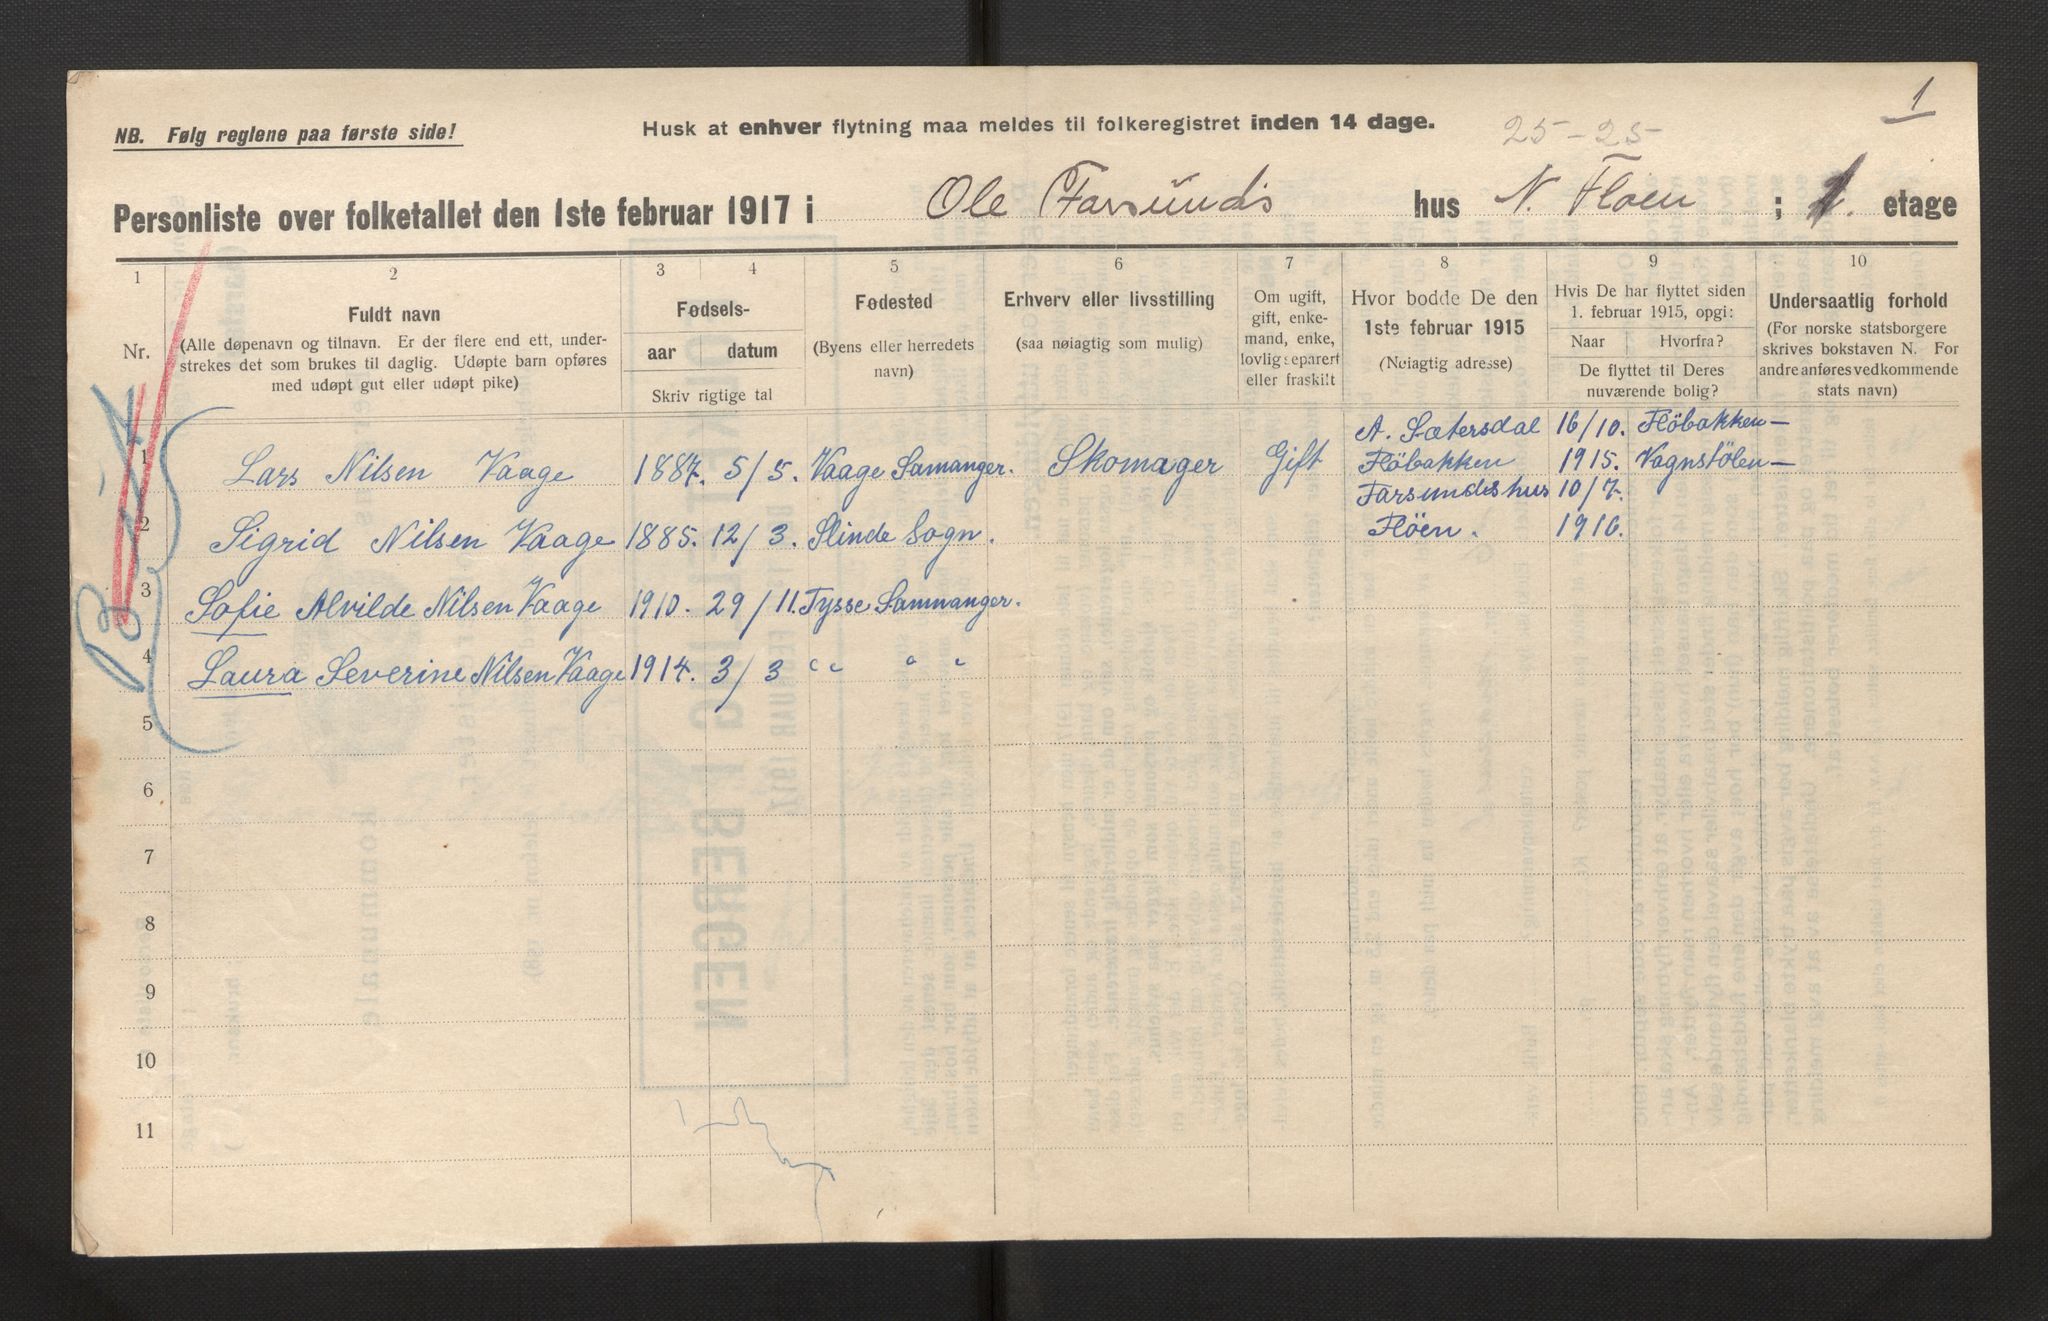 1
NB. Følg reglene paa første side!
Husk at enhver flytning maa meldes til folkeregistret inden 14 dage.
25-25
Personliste over folketallet den 1ste februar 1917 i Ole Farsunds hus N. Floen ; 1. etage
1 2 3 4 5 6 7 8 9 10
Nr.
Fuldt navn
(Alle døpenavn og tilnavn. Er der flere end ett, under-
strekes det som brukes til daglig. Udøpte barn opføres
med udøpt gut eller udøpt pike)
Fødsels-
aar datum
Skriv rigtige tal
Fødested
(Byens eller herredets
navn)
Erhverv eller livsstilling
(saa nøiagtig som mulig)
Om ugift,
gift, enke-
mand, enke,
lovlig separert
eller fraskilt
Hvor bodde De den
1ste februar 1915
(Nøiagtig adresse)
Hvis De har flyttet siden
1. februar 1915, opgi:
Naar Hvorfra?
De flyttet til Deres
nuværende bolig?
Undersaatlig forhold
(For norske statsborgere
skrives bokstaven N. For
andre anføres vedkommende
stats navn)
A. Sætersdal 16/10. Flöbakken—
1 Lars Nilsen Vaage 1887. 5/5. Vaage Samanger. Skomager Gift Flöbakken 1915. Vognstölen—
Farsundshus 10/7.
2 Sigrid Nilsen Vaage 1885. 12/3. Slinde Sogn. Flöen. 1916.
3 Sofie Alvilde Nilsen Vaage 1910. 29/11. Tysse Samnanger.
4 Laura Severine Nilsen Vaage 1914. 3/3 " " "
5
6
7
8
9
10
11